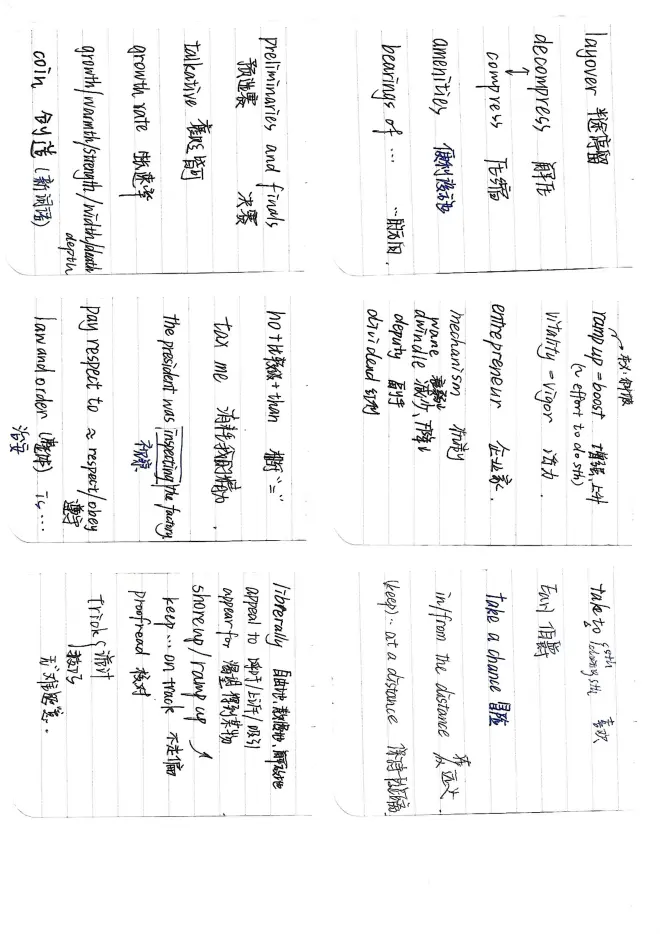 layover 中途停留
decompress 解压
↕
compress 压缩
amenities 便利设施
bearings of … …的方向
preliminaries and finals
预选赛 决赛
talkative 健谈的
growth rate 增速率
growth/warmth/strength/width/death
depth
coin 创造(新词语)
ramp up = boost 增强,上升
(~ effort to do sth)
vitality = vigor 活力.
entrepreneur 企业家.
mechanism 机制
wane
dwindle 减少,下降
deputy 副手
dividend 红利
no + 比较级 + than 相当"="
tax me 消耗我的精力
the president was inspecting the factory
视察
pay respect to ≈ respect/obey
遵守
law and order (整体) is …
治安
take to sth/doing sth 喜欢
Earl 伯爵
take a chance 冒险
in/from the distance 在/从远处
(keep)… at a distance 保持距离
librerally 自由地,
appeal to 呼吁/上诉/吸引
appear for 渴望得到某物
shore up/ramp up ↗
keep … on track 不走偏
proofread 校对
trick 诡计